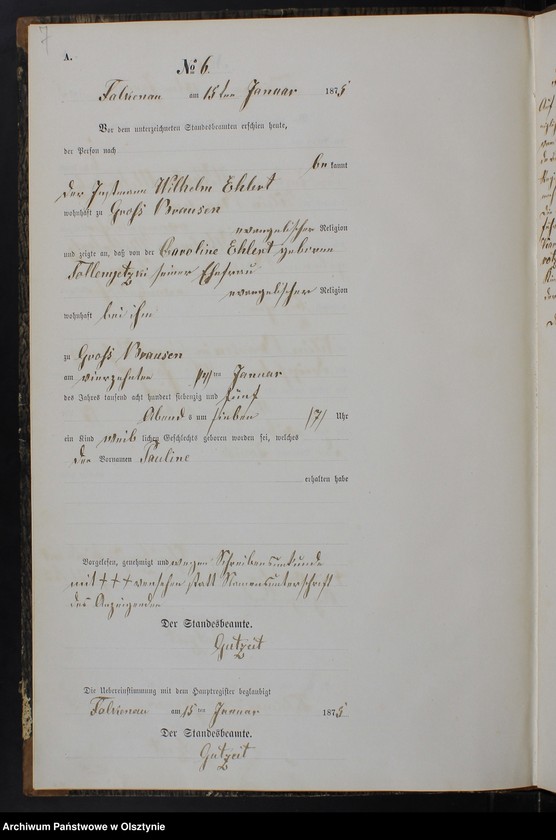 A.
№ 6.
am 15ten Januar 1875
Vor dem unterzeichneten Standesbeamten erschien heute,
der Person nach
be kannt
der Instmann Wilhelm Ehlert
wohnhaft zu Groß Brausen
evangelischer Religion
und zeigte an, daß von der Caroline Ehlert geborene
seiner Ehefrau
evangelischer Religion
wohnhaft bei ihm
zu Groß Brausen
am vierzehnten /14/ten Januar
des Jahres tausend acht hundert siebenzig und fünf
Abends um sieben /7/ Uhr
ein Kind weiblichen Geschlechts geboren worden sei, welches
den Vornamen Pauline
erhalten habe
Vorgelesen, genehmigt und wegen Schreibensunkunde
mit +++ versehen statt Namensunterschrift
des Anzeigenden
Der Standesbeamte.
Gutzeit
Die Uebereinstimmung mit dem Hauptregister beglaubigt
am 15ten Januar 1875
Der Standesbeamte.
Gutzeit
Archiwum Państwowe w Olsztynie